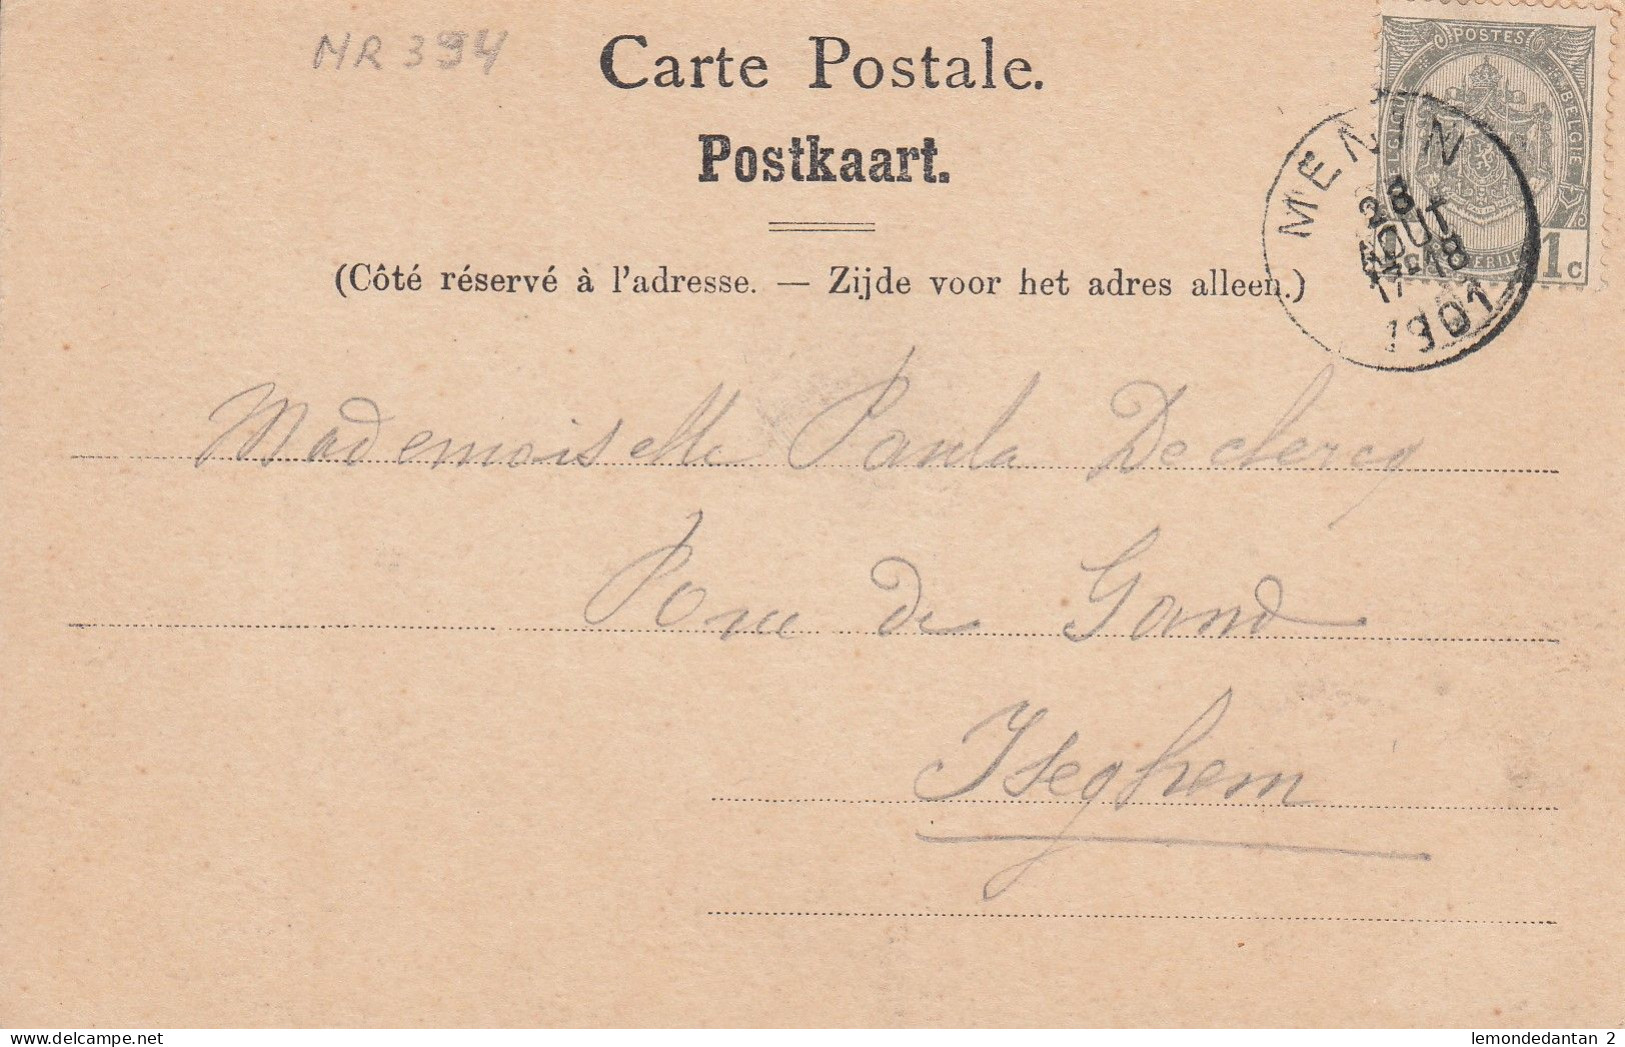 MR 394
Carte Postale.
Postkaart.
(Côté réservé à l'adresse. — Zijde voor het adres alleen.)
POSTES
BELGIE
1c
MENIN
28
AOUT
17-18
1901
Mademoiselle Paula Declercq
Rue de Gand
Iseghem
lemondedantan 2